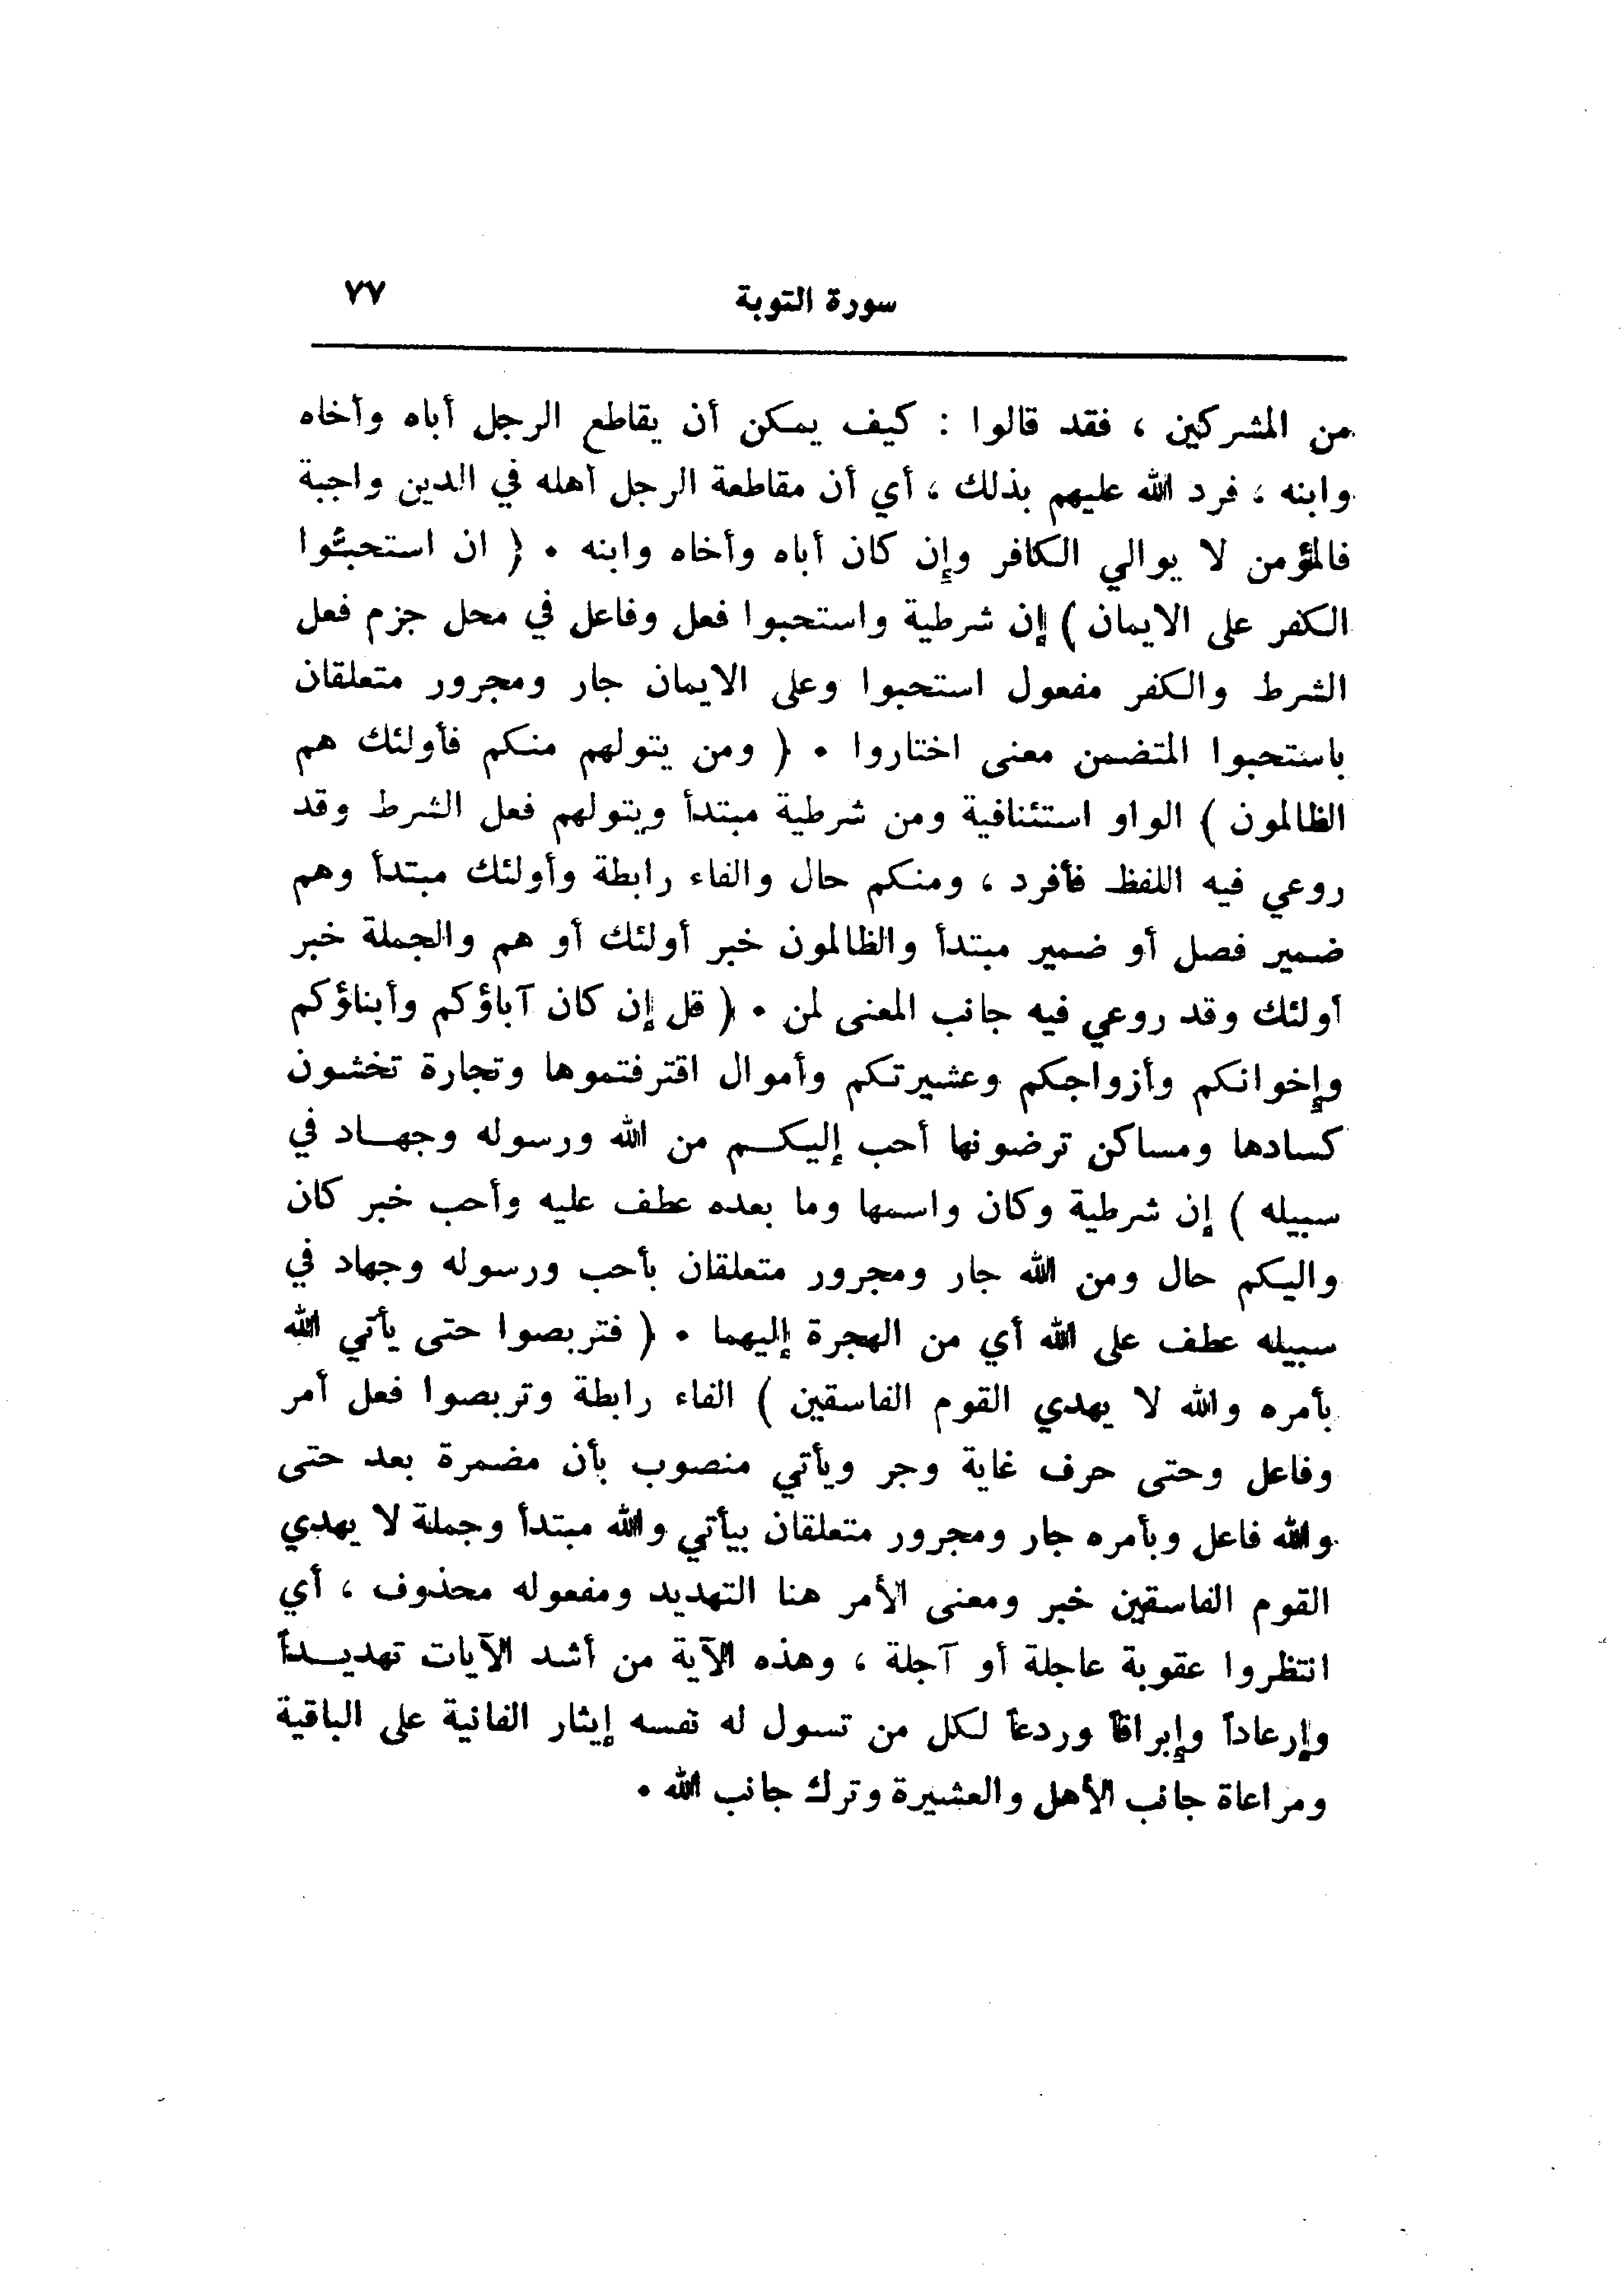 سورة التوبة ٧٧
من المشركين ، فقد قالوا : كيف يمكن أن يقاطع الرجل أباه وأخاه
وابنه ، فرد الله عليهم بذلك ، أي أن مقاطعة الرجل أهله في الدين واجبة
فالمؤمن لا يوالي الكافر وإن كان أباه وأخاه وابنه . ( ان استحبثوا
الكفر على الايمان ) إن شرطية واستحبوا فعل وفاعل في محل جزم فعل
الشرط والكفر مفعول استحبوا وعلى الايمان جار ومجرور متعلقان
باستحبوا المتضمن معنى اختاروا . ( ومن يتولهم منكم فأولئك هم
الظالمون ) الواو استئنافية ومن شرطية مبتدأ ويتولهم فعل الشرط وقد
روعي فيه اللفظ فأفرد ، ومنكم حال والفاء رابطة وأولئك مبتدأ وهم
ضمير فصل أو ضمير مبتدأ والظالمون خبر أولئك أو هم والجملة خبر
أولئك وقد روعي فيه جانب المعنى لمن . ( قل إن كان آباؤكم وأبناؤكم
وإخوانكم وأزواجكم وعشيرتكم وأموال اقترفتموها وتجارة تخشون
كسادها ومساكن ترضونها أحب إليكم من الله ورسوله وجهاد في
سبيله ) إن شرطية وكان واسمها وما بعده عطف عليه وأحب خبر كان
واليكم حال ومن الله جار ومجرور متعلقان بأحب ورسوله وجهاد في
سبيله عطف على الله أي من الهجرة إليهما . ( فتربصوا حتى يأتي الله
بأمره والله لا يهدي القوم الفاسقين ) الفاء رابطة وتربصوا فعل أمر
وفاعل وحتى حرف غاية وجر ويأتي منصوب بأن مضمرة بعد حتى
والله فاعل وبأمره جار ومجرور متعلقان بيأتي والله مبتدأ وجملة لا يهدي
القوم الفاسقين خبر ومعنى الأمر هنا التهديد ومفعوله محذوف ، أي
انتظروا عقوبة عاجلة أو آجلة ، وهذه الآية من أشد الآيات تهديداً
وإرعاداً وإبراقاً وردعاً لكل من تسول له نفسه إيثار الفانية على الباقية
ومراعاة جانب الأهل والعشيرة وترك جانب الله .